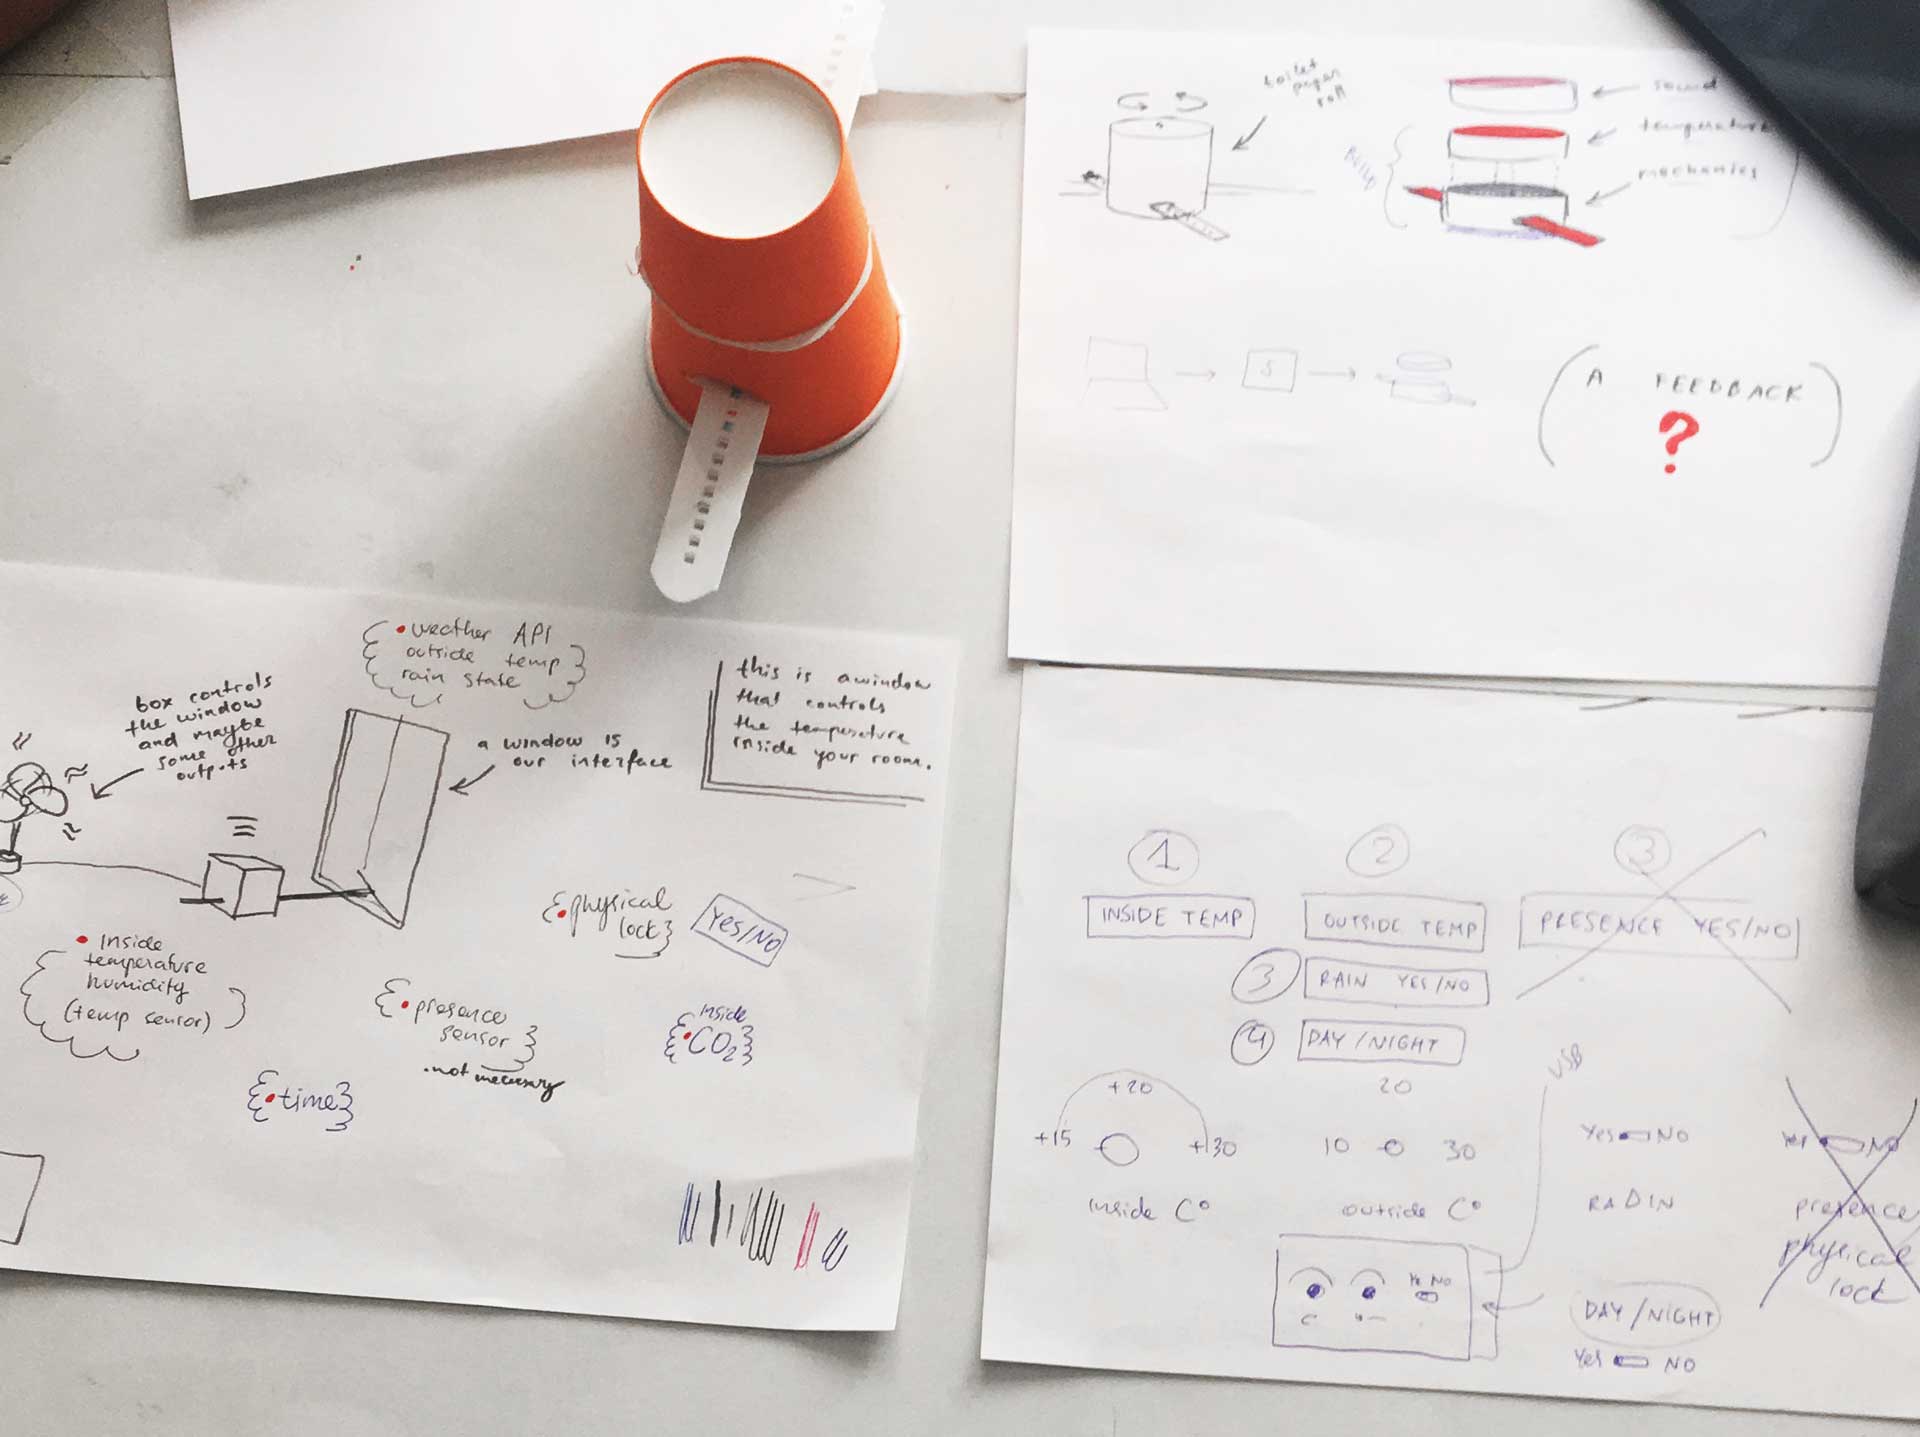 toilet
paper
roll
sound
temperature
mechanics
BUILD
S
A FEEDBACK
?
weather API
outside temp
rain state
box controls
the window
and maybe
some other
outputs
a window is
our interface
this is a window
that controls
the temperature
inside your room.
physical
lock
YES/NO
Inside
temperature
humidity
(temp sensor)
presence
sensor
not necessary
inside
CO2
time
1
2
3
INSIDE TEMP
OUTSIDE TEMP
PRESENCE YES/NO
3 RAIN YES/NO
4 DAY/NIGHT
+20
+15
+30
inside C°
20
10
30
outside C°
USB
Yes NO
RADIN
Yes NO
presence
physical
lock
Ye No
DAY/NIGHT
Yes NO